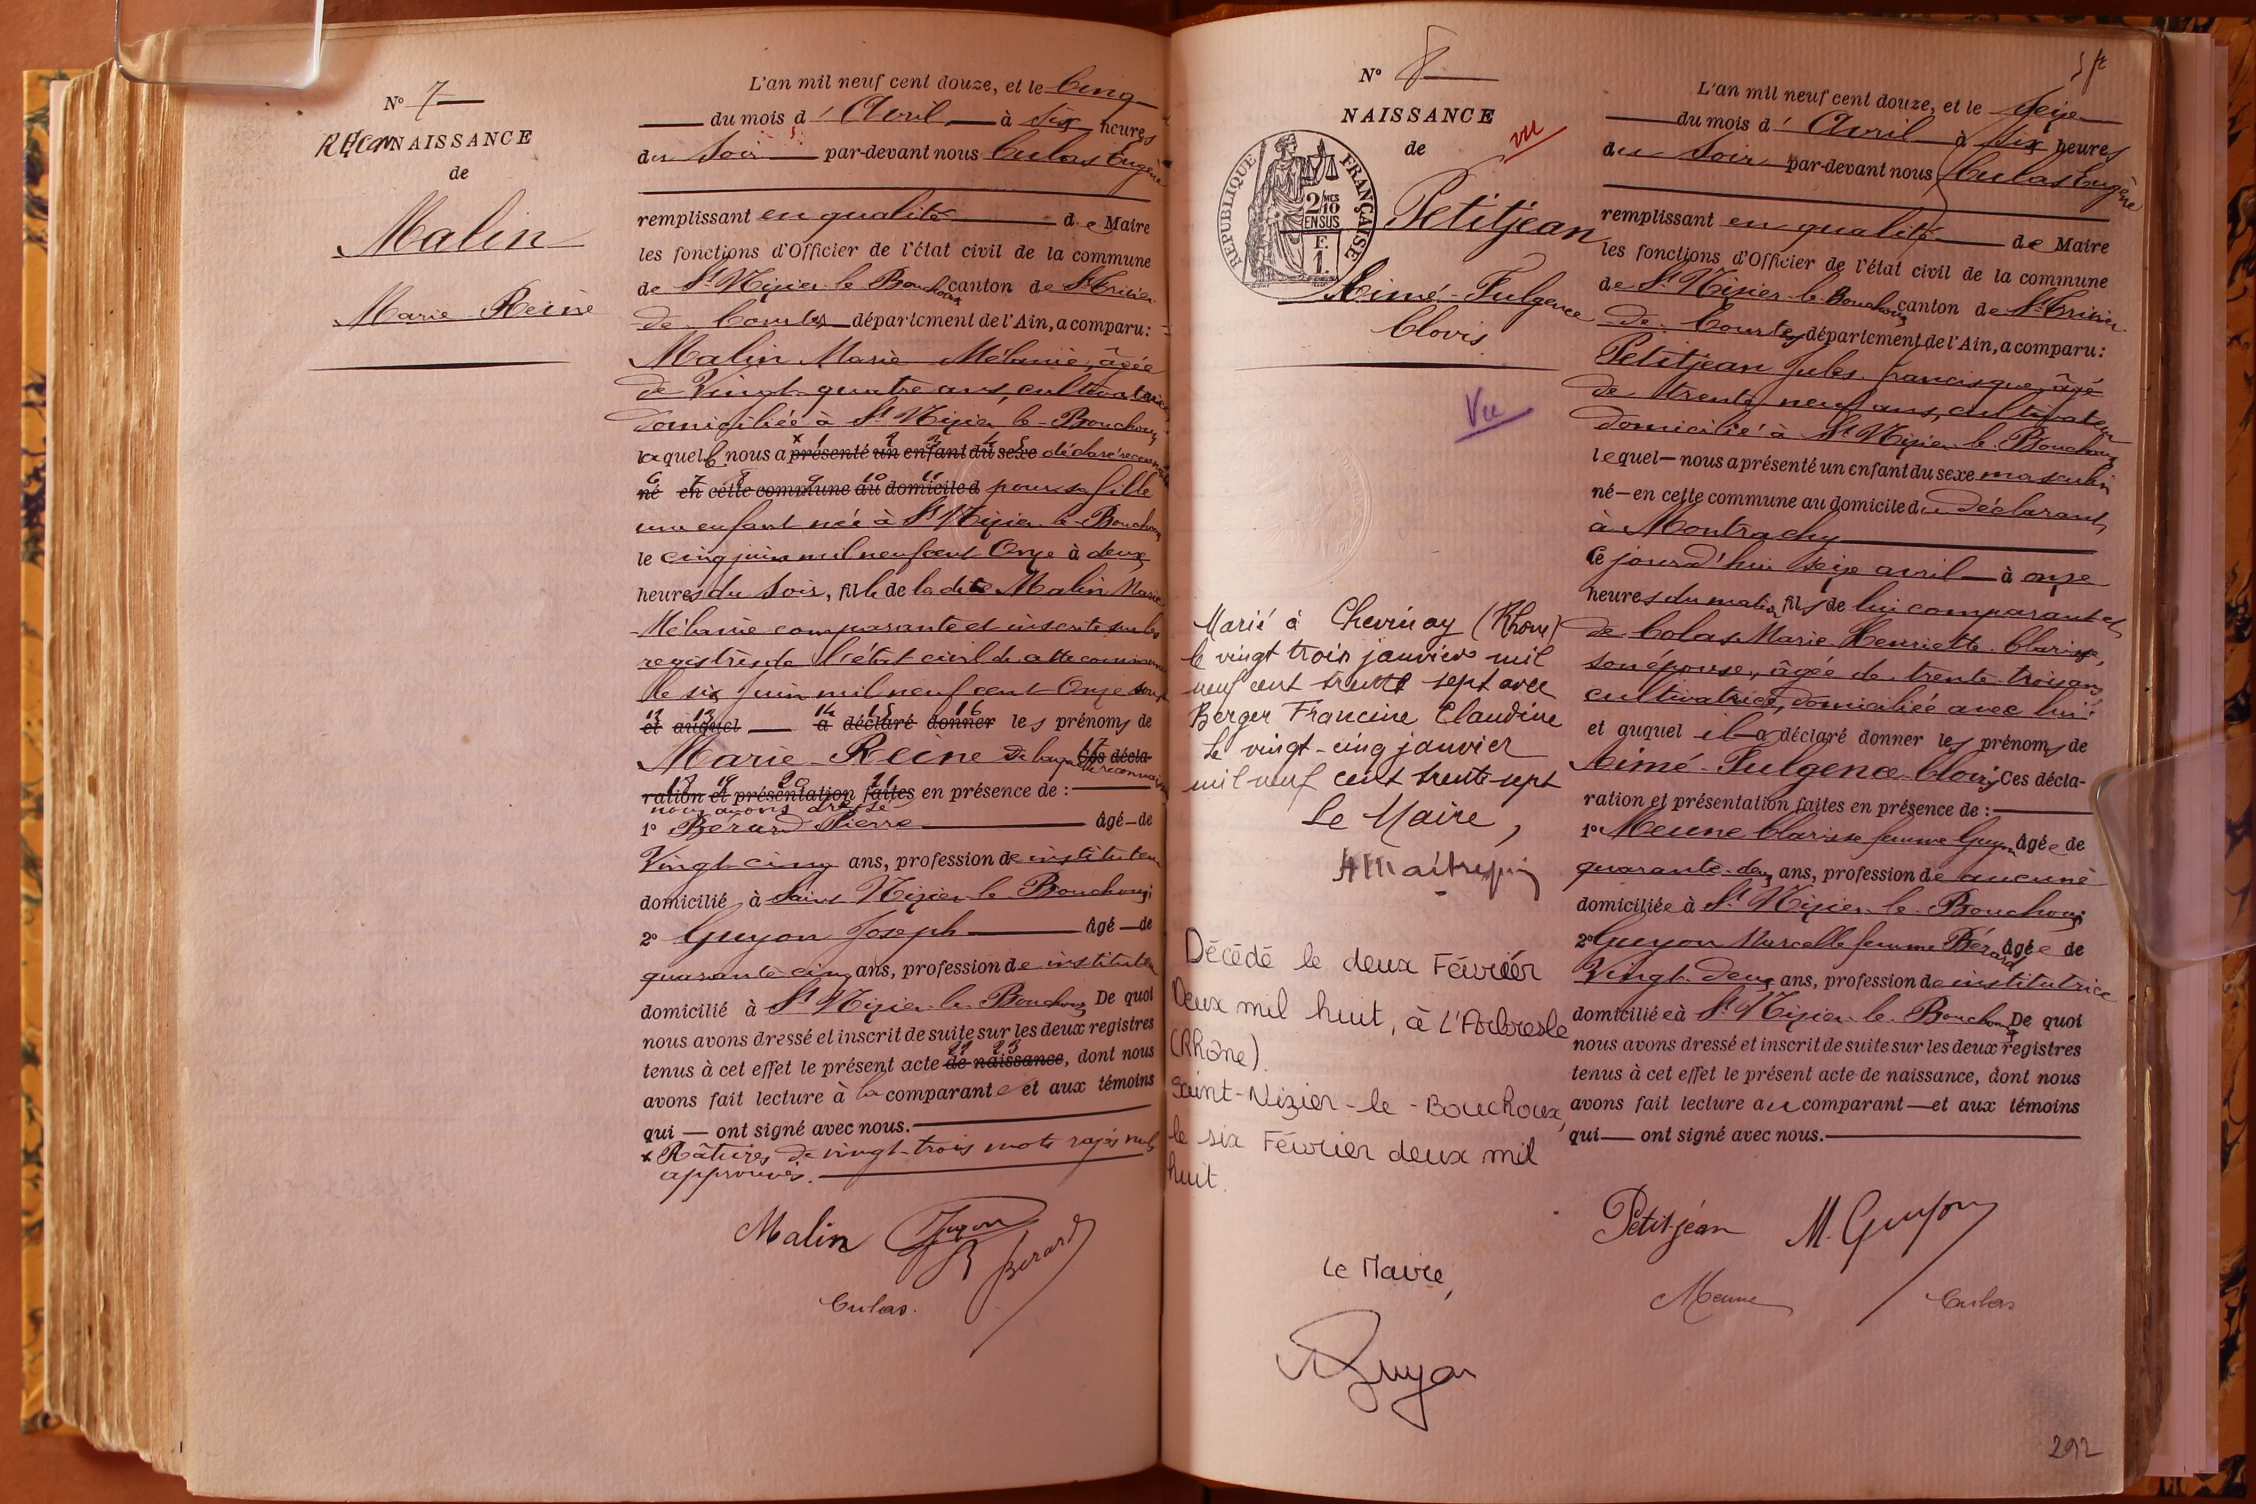 N° 7
RECONNAISSANCE
de
Malin
Marie Reine
L'an mil neuf cent douze, et le Cinq
du mois d' Avril à six heures
du soir par-devant nous Culas Eugène
remplissant en qualité de Maire
les fonctions d'Officier de l'état civil de la commune
de St Nizier le Bouchoux canton de St Trivier
de Courtes département de l'Ain, a comparu :
Malin Marie Mélanie, âgée
de Vingt quatre ans, cultivatrice
domiciliée à St Nizier le Bouchoux
laquelle nous a présenté un enfant du sexe déclaré reconnaître
né en cette commune au domicile d pour sa fille
une enfant née à St Nizier le Bouchoux
le cinq juin mil neuf cent Onze à deux
heures du soir, fille de la dite Malin Marie
Mélanie comparante et inscrite sur les
registres de l'état civil de cette commune
le six Juin mil neuf cent Onze sous
et auquel a déclaré donner les prénoms de
Marie Reine De laquelle reconnaissance Ces décla-
ration et présentation faites en présence de :
nous avons dressé
1° Bérard Pierre âgé de
Vingt cinq ans, profession de instituteur
domicilié à Saint Nizier le Bouchoux;
2° Guyon Joseph âgé de
quarante cinq ans, profession de instituteur
domicilié à St Nizier le Bouchoux De quoi
nous avons dressé et inscrit de suite sur les deux registres
tenus à cet effet le présent acte de naissance, dont nous
avons fait lecture à la comparante et aux témoins
qui — ont signé avec nous.
x Râtures de vingt-trois mots rayés nuls
approuvés.
Malin Guyon
Berard
Culas.
N° 8
NAISSANCE
de
vu
REPUBLIQUE FRANÇAISE
2 MES 10
EN SUS
F.
1.
Petitjean
Aimé-Fulgence
Clovis
Vu
Marié à Chevinay (Rhône)
le vingt trois janvier mil
neuf cent trente sept avec
Berger Francine Claudine
Le vingt-cinq janvier
mil neuf cent trente-sept
Le Maire,
Décédé le deux Février
Deux mil huit, à L'Arbresle
(Rhône).
Saint-Nizier-le-Bouchoux,
le six Février deux mil
huit.
Le Maire,
Guyon
L'an mil neuf cent douze, et le Seize
du mois d' Avril à six heures
du soir par-devant nous Culas Eugène
remplissant en qualité de Maire
les fonctions d'Officier de l'état civil de la commune
de St Nizier le Bouchoux canton de St Trivier
de Courtes département de l'Ain, a comparu :
Petitjean Jules francisque, âgé
de trente neuf ans, cultivateur
domicilié à St Nizier le Bouchoux
lequel — nous a présenté un enfant du sexe masculin
né — en cette commune au domicile du déclarant,
à Montrachy
Ce jourd'hui seize avril — à onze
heures du matin, fils de lui comparant et
de Colas Marie Henriette Clarisse,
son épouse, âgée de trente trois ans
cultivatrice, domiciliée avec lui.
et auquel il a déclaré donner les prénoms de
Aimé-Fulgence-Clovis Ces décla-
ration et présentation faites en présence de :
1° Meune Clarisse femme Guyon âgée de
quarante-deux ans, profession de aucune
domiciliée à St Nizier-le-Bouchoux;
2° Guyon Marcelle femme Bérard âgée de
Vingt-deux ans, profession de institutrice
domiciliée à St Nizier-le-Bouchoux De quoi
nous avons dressé et inscrit de suite sur les deux registres
tenus à cet effet le présent acte de naissance, dont nous
avons fait lecture au comparant — et aux témoins
qui — ont signé avec nous.
Petitjean M. Guyon
Meune Culas
292